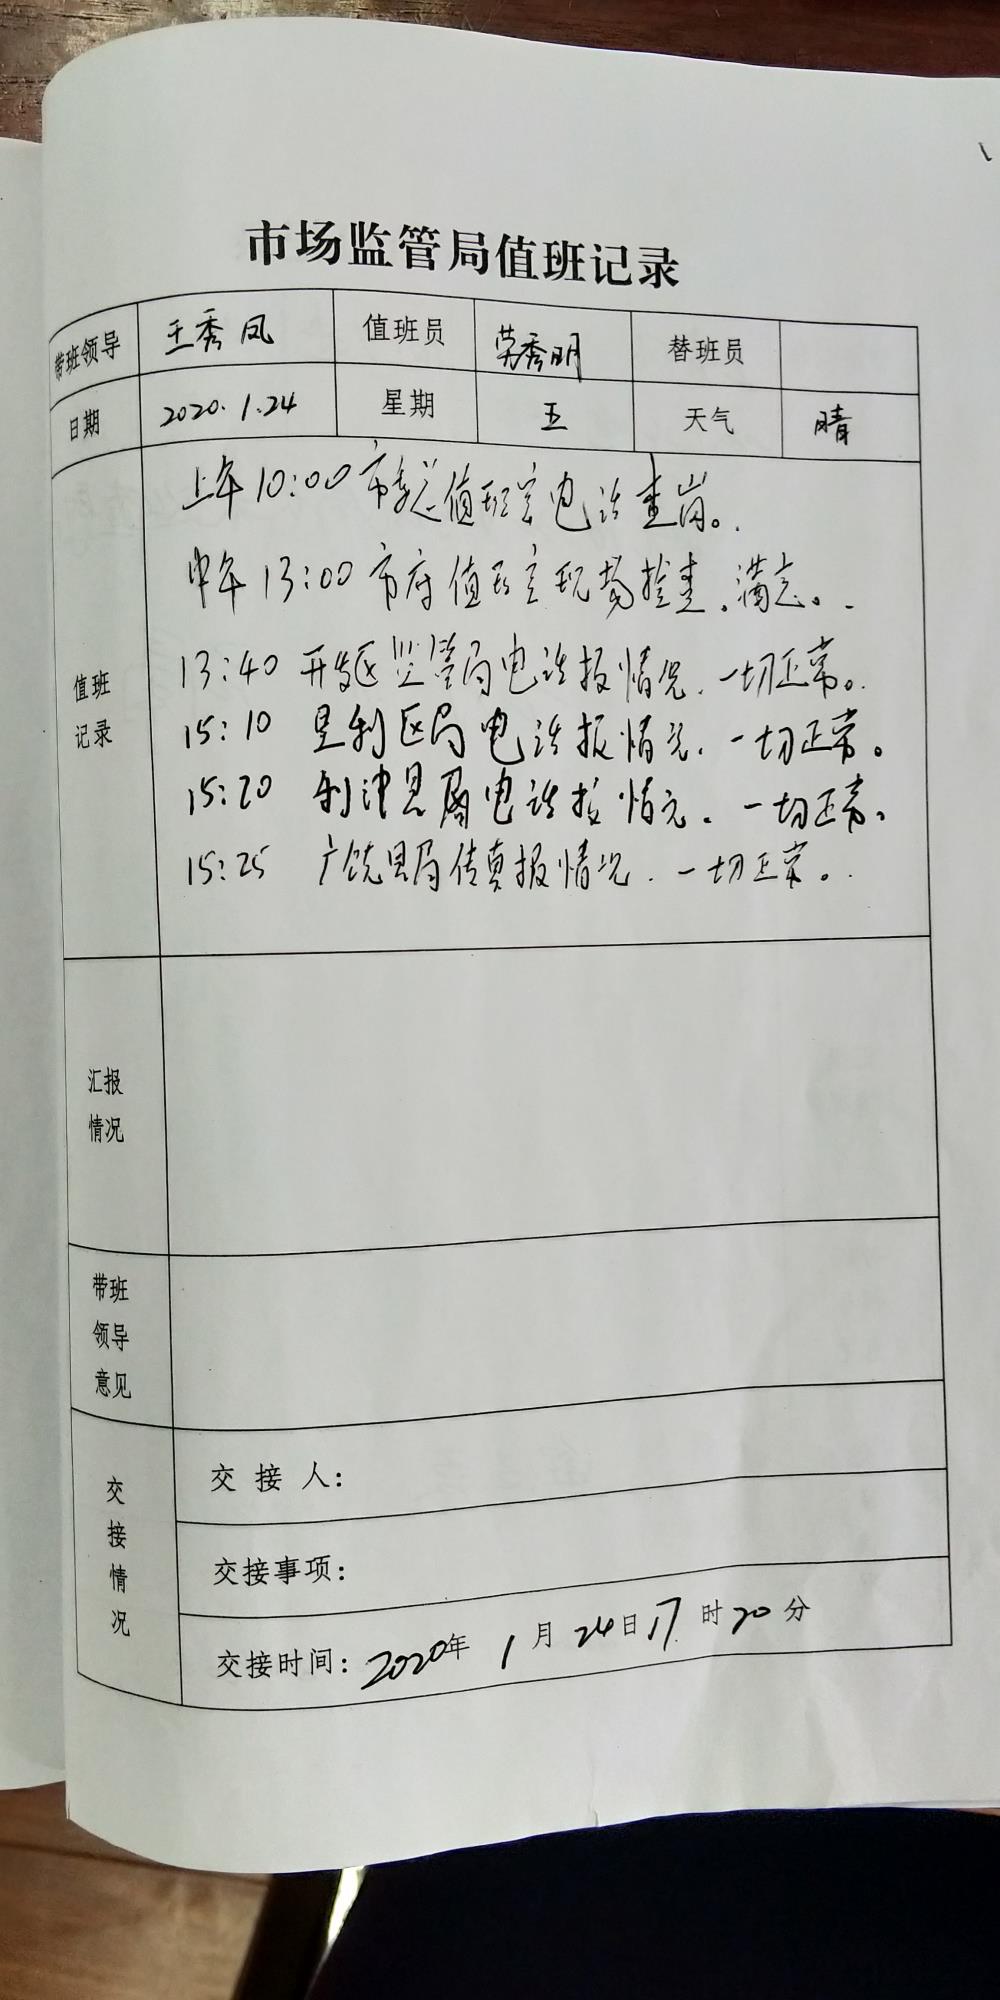 市场监管局值班记录
带班领导 王秀凤 值班员 荣秀明 替班员
日期 2020.1.24 星期 五 天气 晴
值班记录
上午10:00市委总值班室电话查岗。
中午13:00市府值班室现场检查。满意。
13:40 开发区监管局电话报情况.一切正常。
15:10 垦利区局电话报情况.一切正常。
15:20 利津县局电话报情况.一切正常。
15:25 广饶县局传真报情况.一切正常。
汇报
情况
带班
领导
意见
交接情况
交接人:
交接事项:
交接时间: 2020年1月24日17时20分